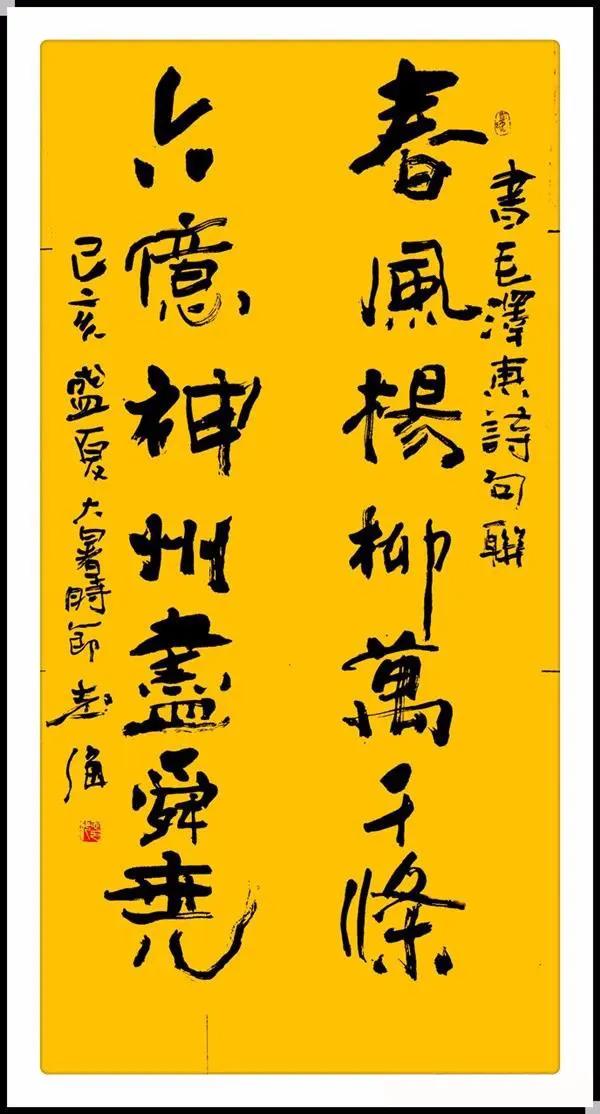 書毛澤東詩句聯
春風楊柳萬千條
六億神州盡舜堯
己亥盛夏大暑時節